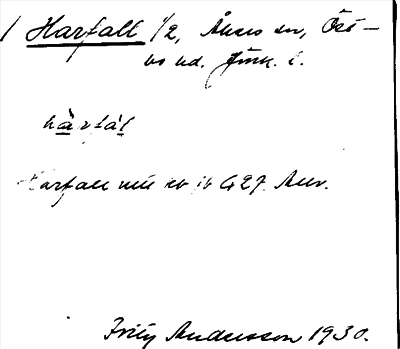 / Harfall 1/2, Åkers sn, Öst-
bo hd. Jönk. l.
hàrfál
Harfall G 427. Anv.
Fritz Andersson 1930.